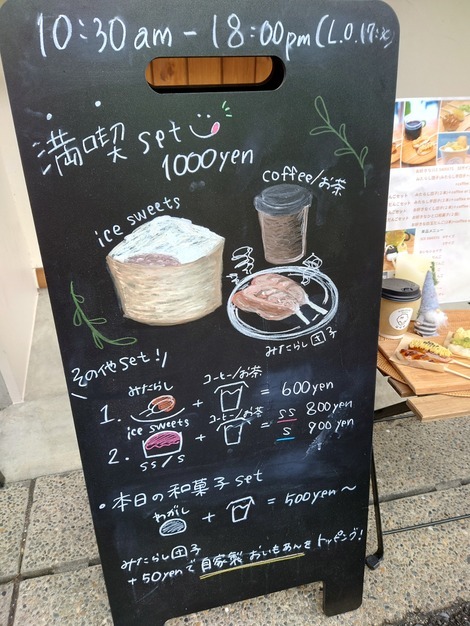 10:30am - 18:00pm (L.O.17:30)
満喫 set
1000yen
coffee/お茶
ice sweets
みたらし団子
その他set!
みたらし
コーヒー/お茶
1. + = 600yen
ice sweets
コーヒー/お茶
2. + = SS 800yen
S 900yen
SS/S
・本日の和菓子set
わがし
+ = 500yen〜
みたらし団子
+50yenで自家製おいもあんをトッピング!